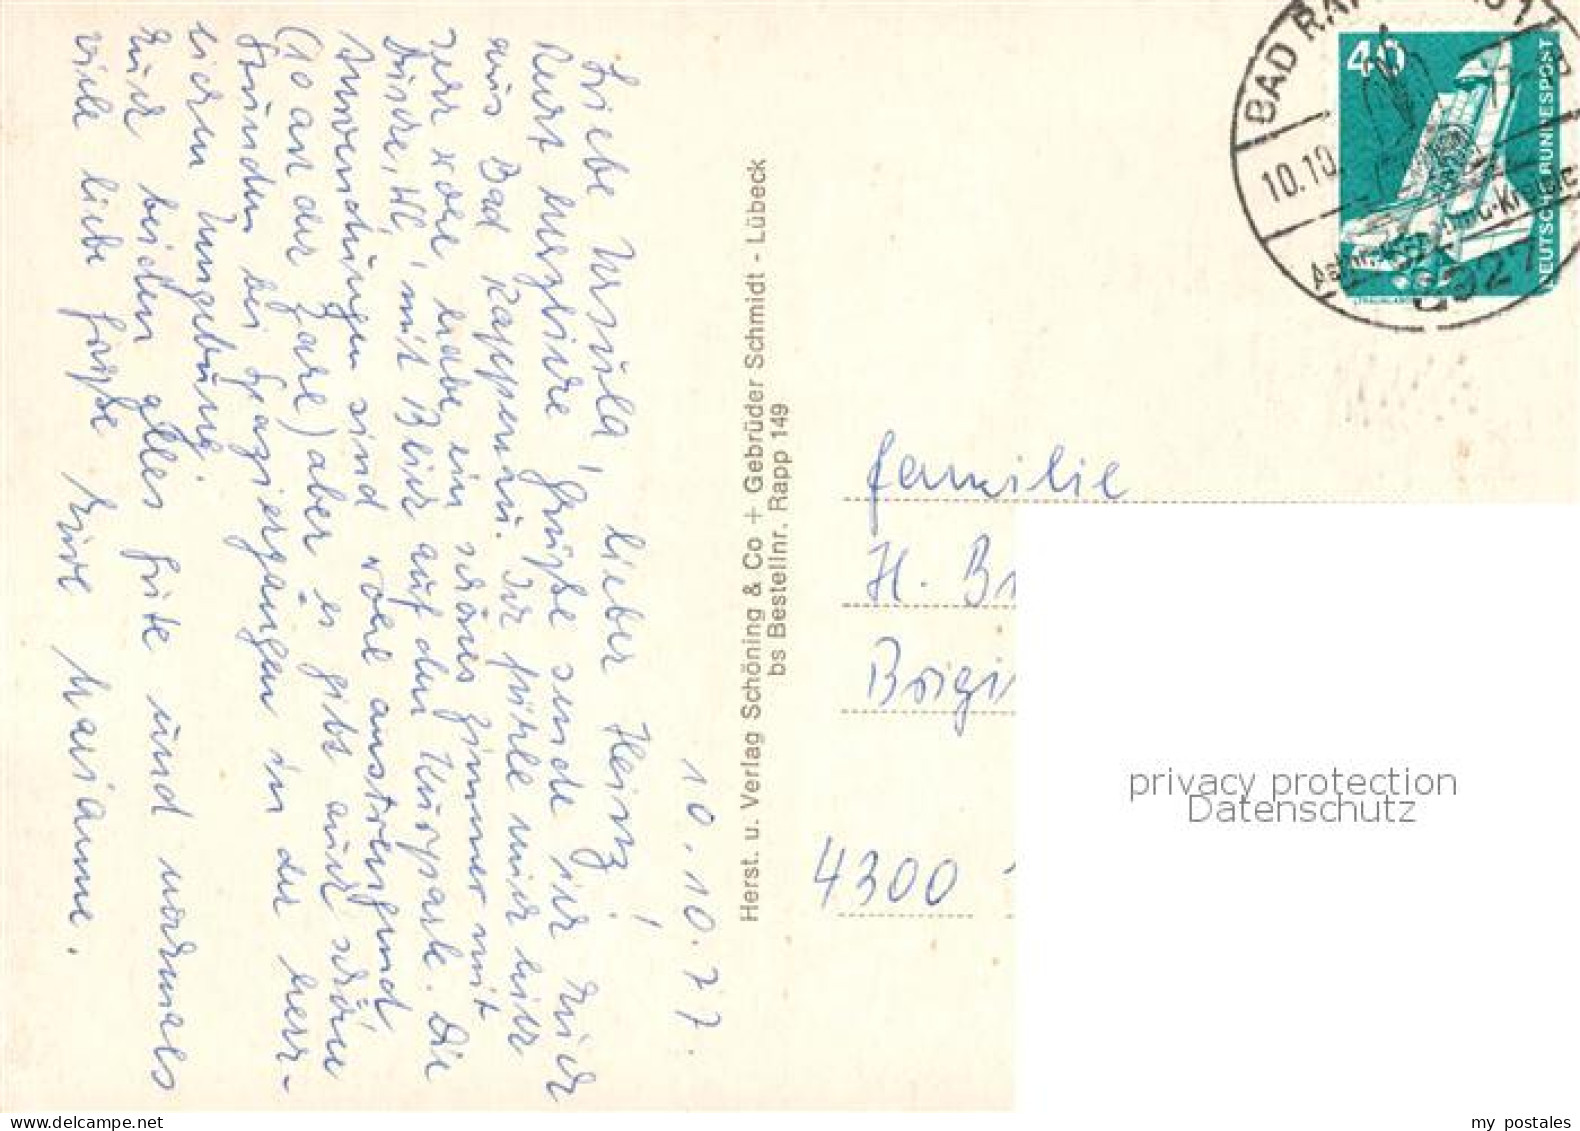 10.10.77.
Liebe Ursula, lieber Heinz!
Kurz herzliche Grüße sende ich Euch
aus Bad Rappenau. Ich fühle mich hier
sehr wohl, habe ein schönes Zimmer mit
Dusche, WC, mit Blick auf den Kurpark. Die
Anwendungen sind wohl anstrengend
(10 an der Zahl) aber es gibt auch schöne
Stunden bei Spaziergängen in der herr-
lichen Umgebung.
Euch beiden alles Gute und nochmals
viele liebe Grüße Eure Marianne.
Herst. u. Verlag Schöning & Co + Gebrüder Schmidt - Lübeck
bs Bestellnr. Rapp 149
BAD RAP
10.10
6927
40
DEUTSCHE BUNDESPOST
Familie
H. Br
Brigi
4300
privacy protection
Datenschutz
my postales